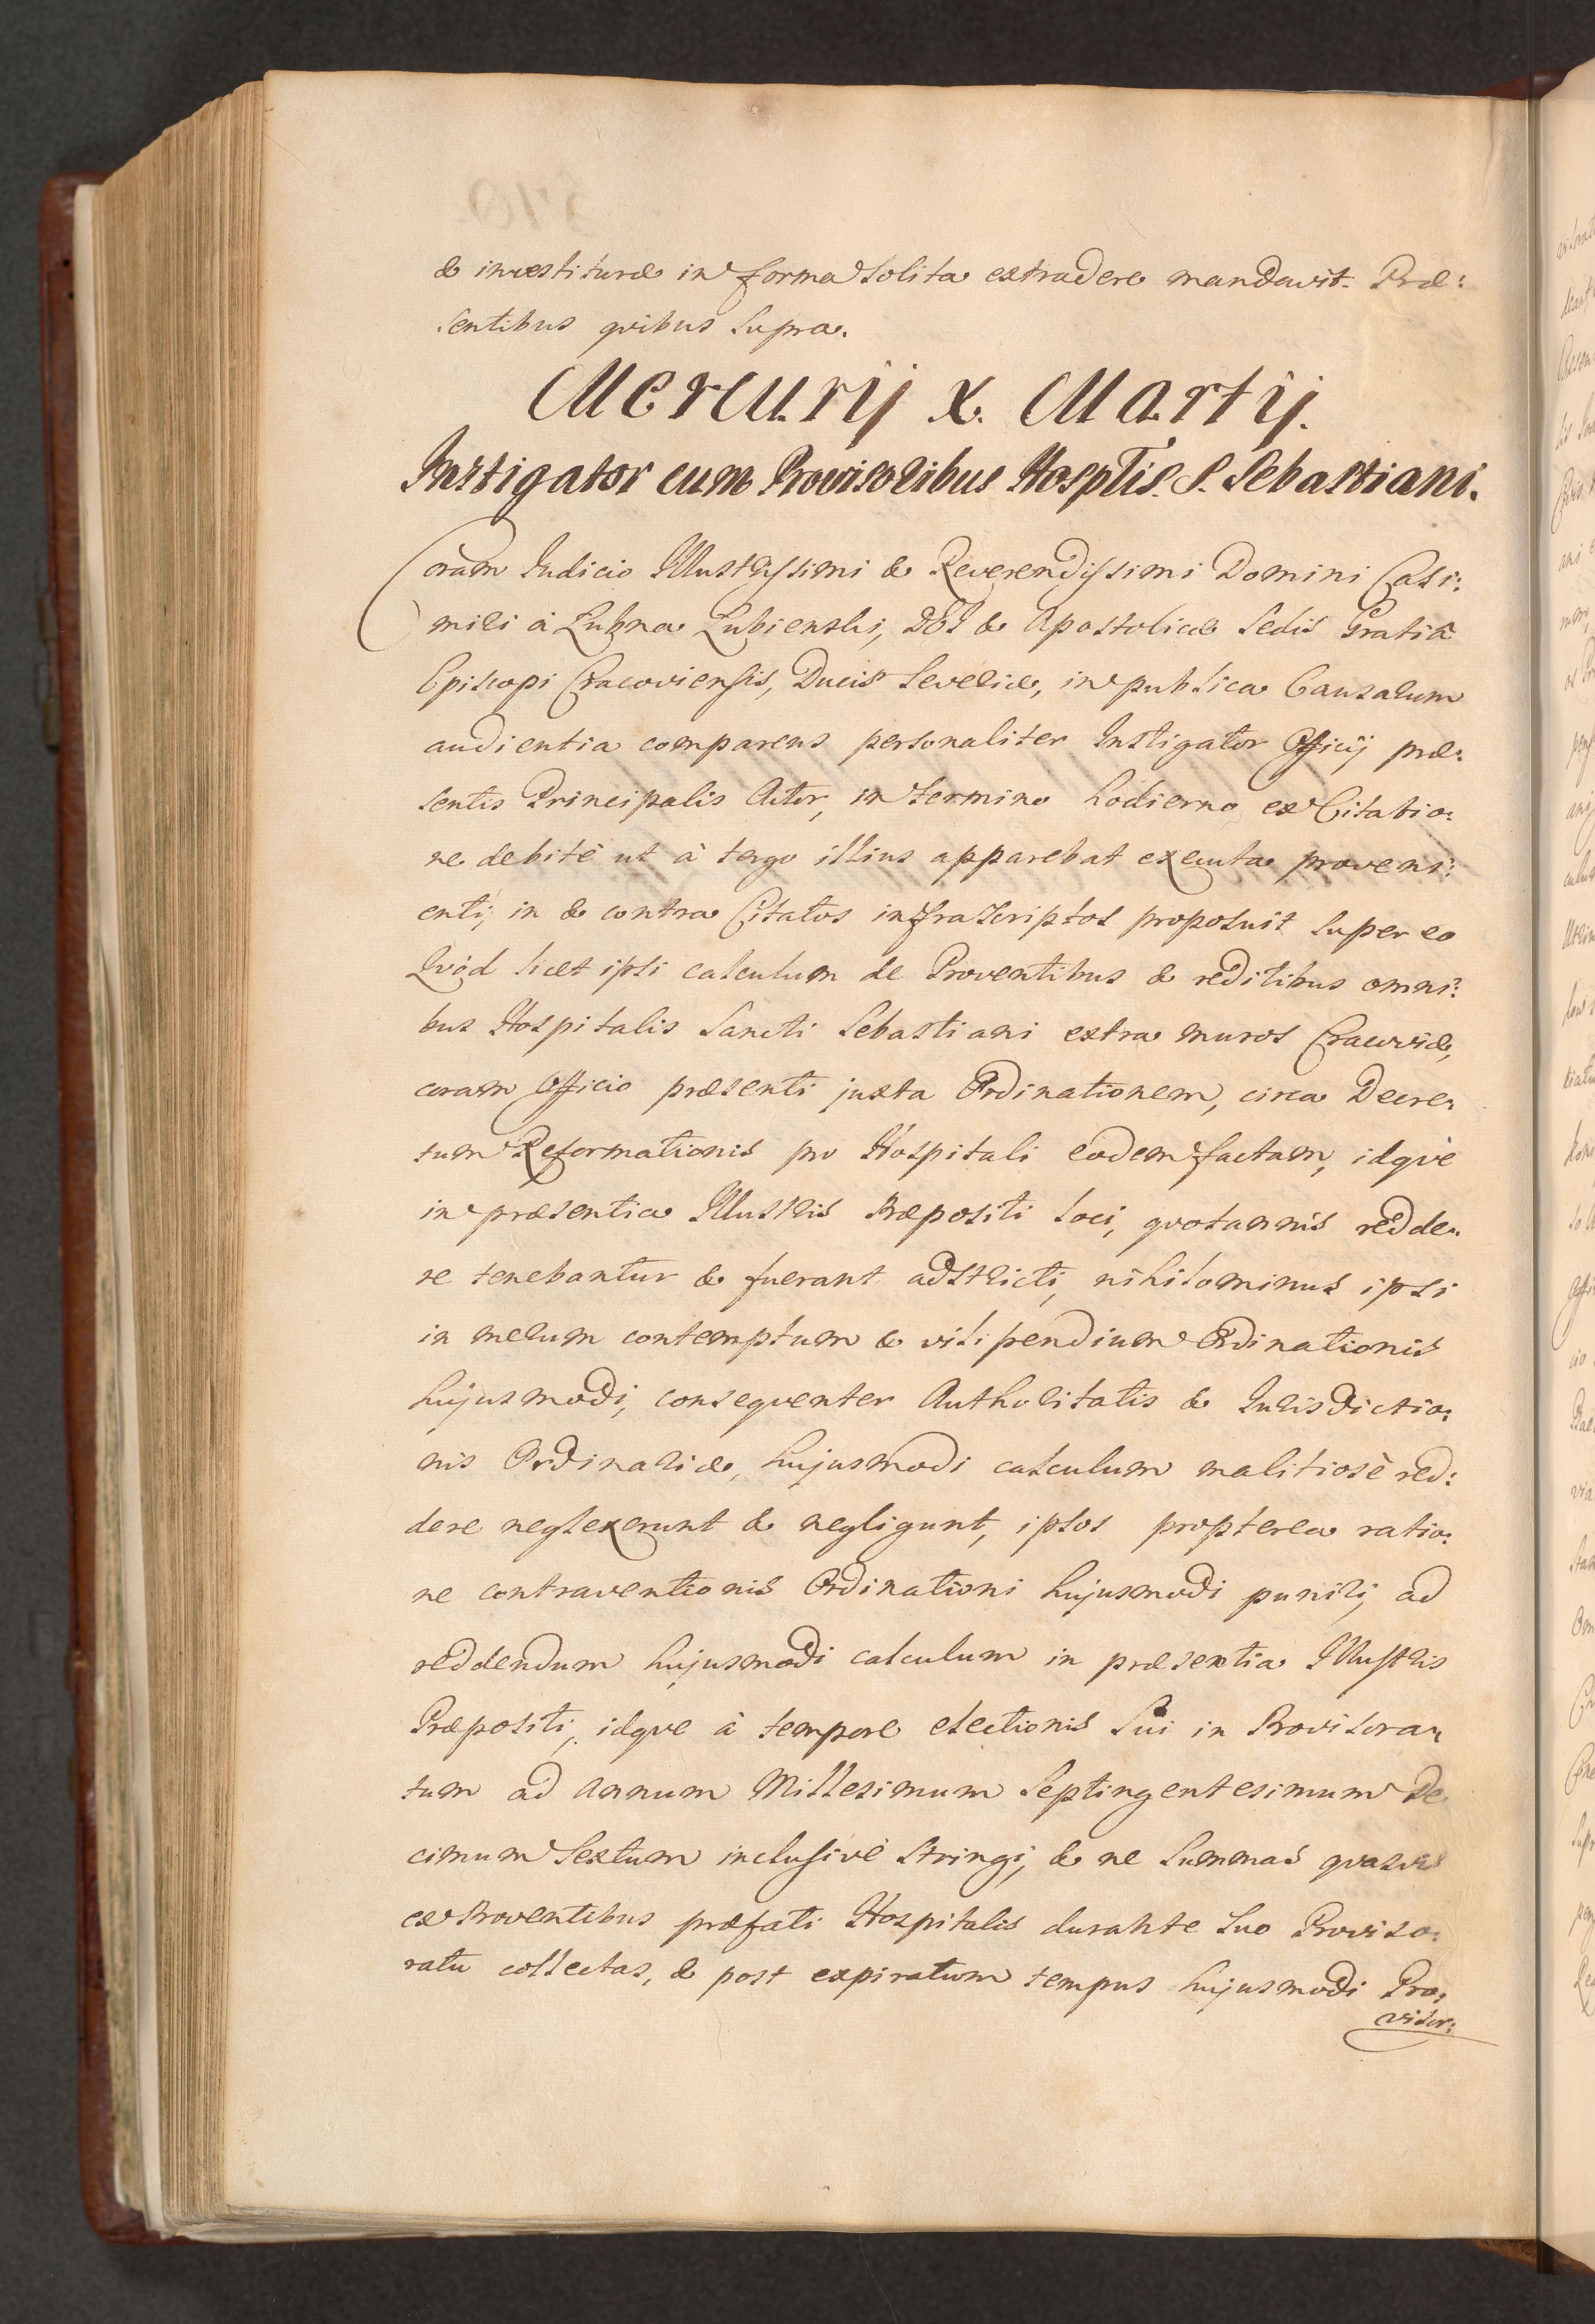 & investituræ in forma solita extradere mandavit. Præ:
sentibus qvibus supra.
Mercurij X. Martij.
Instigator cum Provisoribus Hosptis. S. Sebastiani.
Coram Iudicio Illustrissimi & Reverendissimi Domini Casi:
miri à Łubna Łubienski, DEI & Apostolicæ Sedis Gratiâ
Episcopi Cracoviensis, Ducis Severiæ, in publica Causarum
audientia comparens personaliter Instigator Officij præ:
sentis Principalis Actor, in termino hodierno ex Citatio:
ne debitè ut à tergo illius apparebat executa proveni:
enti, in & contra Citatos infrascriptos proposuit super eo
Qvòd licet ipsi calculum de Proventibus & reditibus omni:
bus Hospitalis Sancti Sebastiani extra muros Cracoviæ,
coram Officio præsenti juxta Ordinationem, circa Decre:
tum Reformationis pro Hospitali eodem factam, idqvè
in præsentia Illustris Præpositi loci, qvotannis redde:
re tenebantur & fuerant adstricti, nihilominus ipsi
in merum contemptum & vilipendium Ordinationis
hujusmodi, conseqventer Authoritatis & Iurisdictio:
nis Ordinariæ, hujusmodi calculum malitiosè red:
dere neglexerunt & negligunt, ipsos propterea ratio:
ne contraventionis Ordinationi hujusmodi puniri, ad
reddendum hujusmodi calculum in præsentia Illustris
Præpositi, idqve à tempore electionis sui in Provisora:
tum ad annum Millesimum Septingentesimum De
cimum Sextum inclusivè stringi, & ne summas qvasvis
ex Proventibus præfati Hospitalis durante suo Proviso:
ratu collectas, & post expiratum tempus hujusmodi Pro:
visor: